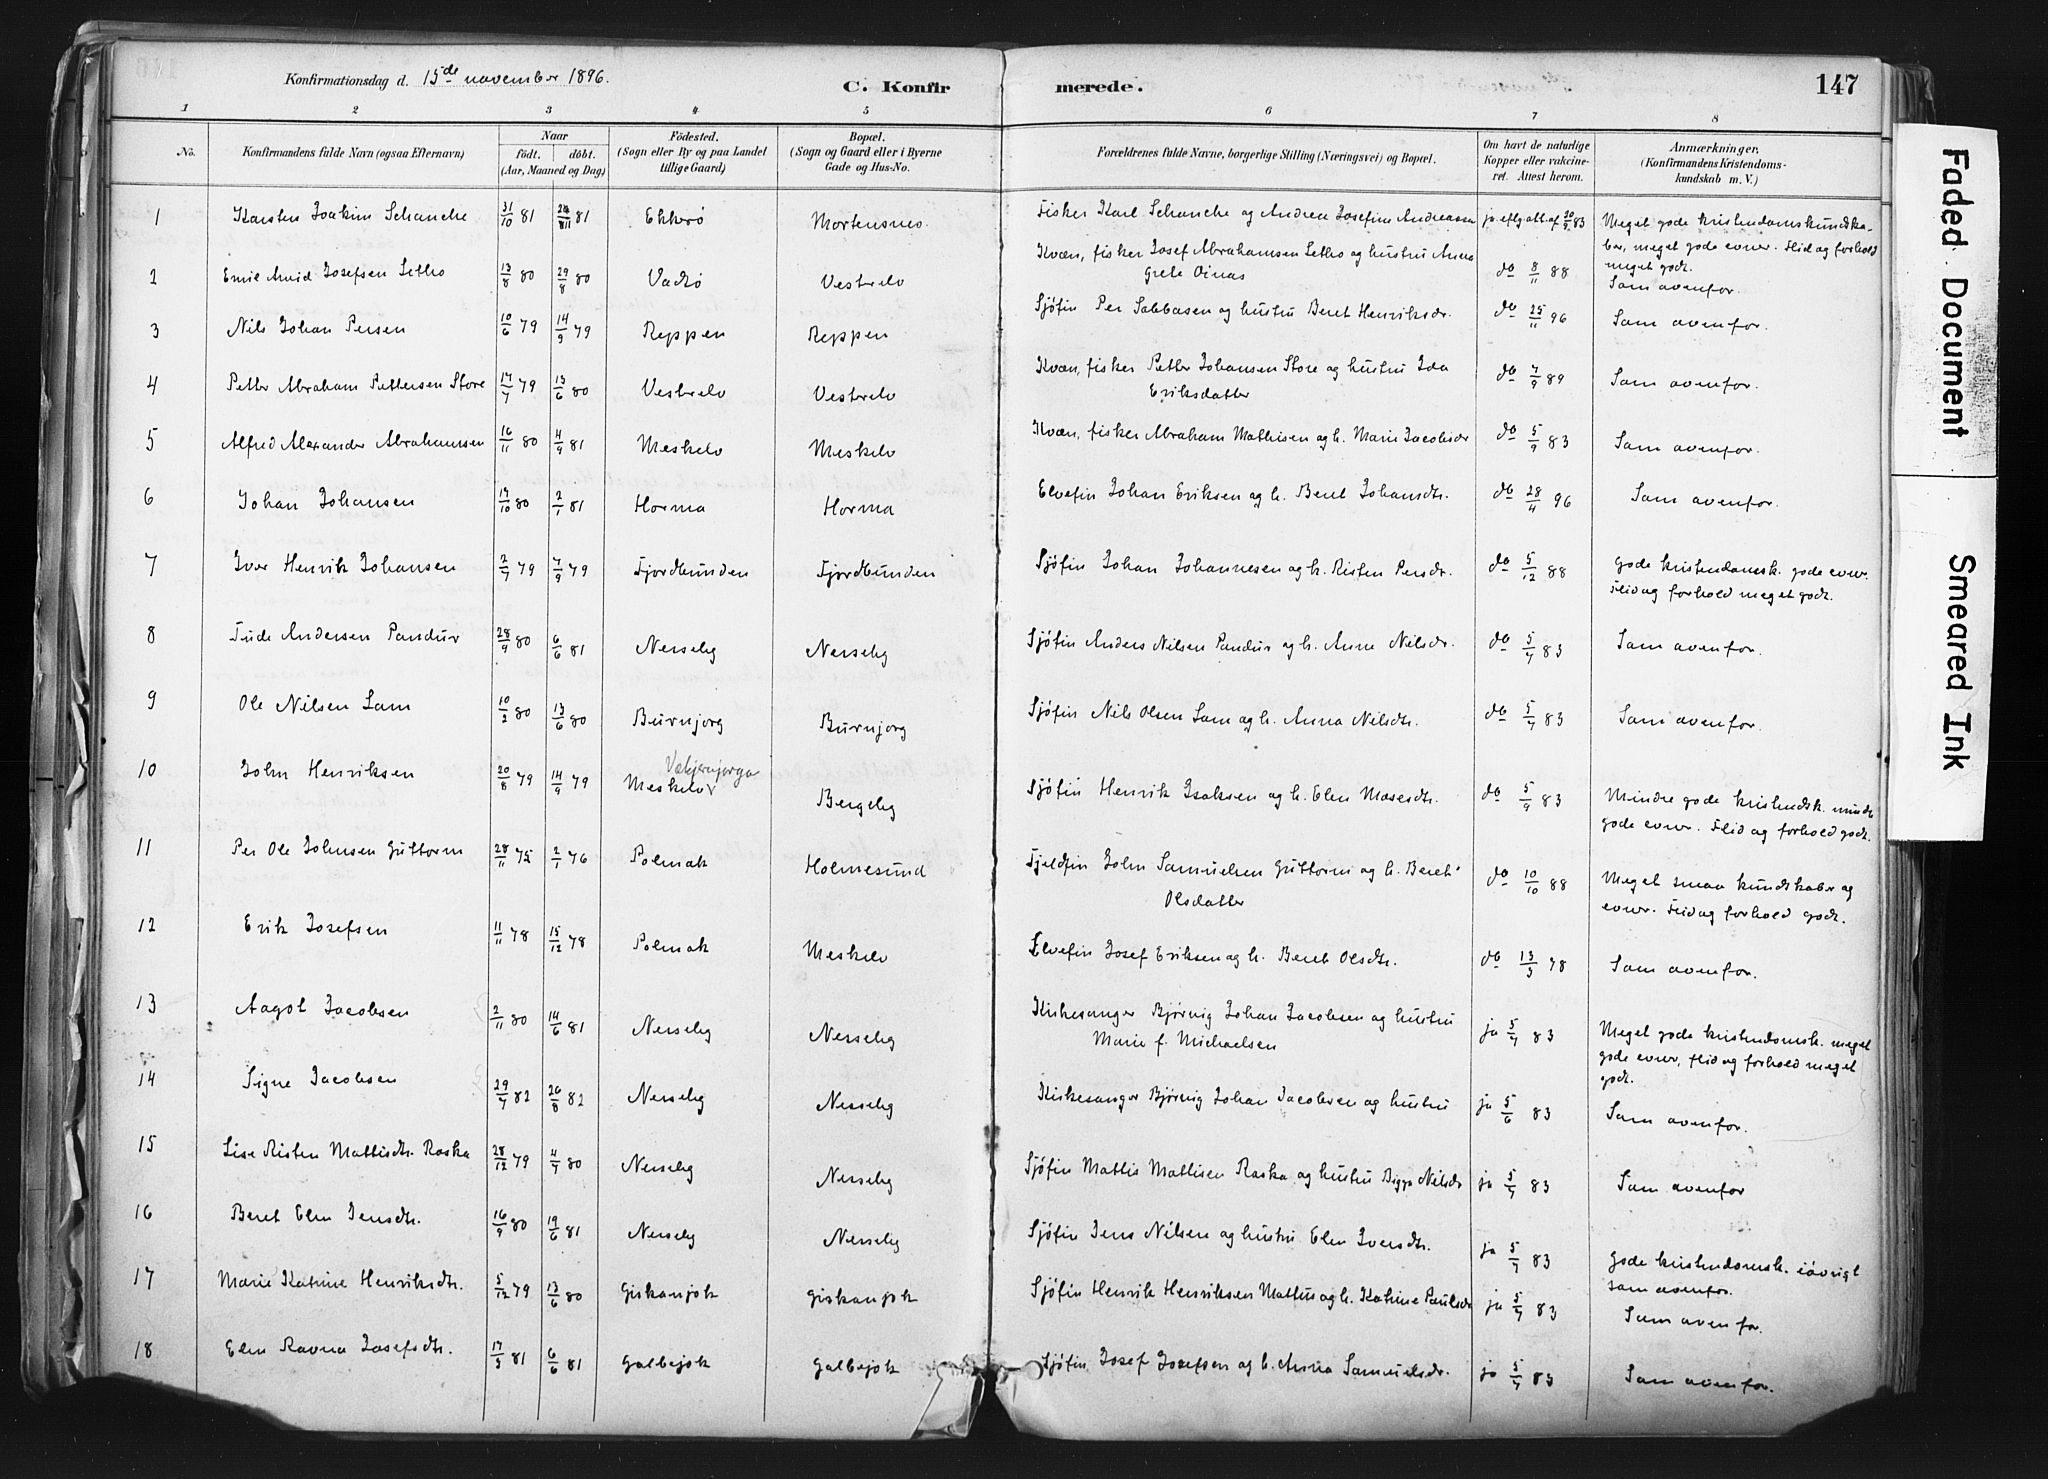 147
Konfirmationsdag d. 15de november 1896.
C. Konfirmerede.
1 2 3 4 5 6 7 8
No.
Konfirmandens fulde Navn (ogsaa Efternavn)
Naar
födt. döbt.
(Aar, Maaned og Dag)
Födested.
(Sogn eller By og paa Landet
tillige Gaard)
Bopæl.
(Sogn og Gaard eller i Byerne
Gade og Hus-No.
Forældrenes fulde Navne, borgerlige Stilling (Næringsvei) og Bopæl.
Om havt de naturlige
Kopper eller vakcine-
ret. Attest herom.
Anmærkninger,
(Konfirmandens Kristendoms-
kundskab m. V.)
1 Karsten Joakim Schanche 31/10 81 81 Ekkerö Mortensnes Fisker Karl Schanche og Andrea Josefine Andreassen ja eflg. att. af 83 Meget gode kristendomskundska-
ber, meget gode evner. Flid og forhold
meget godt.
2 Emil Arvid Josefsen Letho 13/8 80 29/8 80 Vadsö Vesterelv Kvæn, fisker Josef Abrahamsen Letho og hustru Anna
Grete Oinas do 8/11 88 Som ovenfor.
3 Nils Johan Persen 10/6 79 14/9 79 Reppen Reppen Sjöfin Per Sabbasen og hustru Beret Henriksdr. do 25/11 96 Som ovenfor.
4 Petter Abraham Pettersen Store 17/7 79 13/6 80 Vesterelv Vesterelv Kvæn, fisker Petter Johansen Store og hustru Ida
Eriksdatter do 7/9 89 Som ovenfor.
5 Alfred Alexander Abrahamsen 16/11 80 4/9 81 Meskelv Meskelv Kvæn, fisker Abraham Mathisen og h. Marie Jacobsdr do 5/9 83 Som ovenfor.
6 Johan Johansen 17/10 80 2/1 81 Horma Horma Elvefin Johan Eriksen og h. Beret Johansdtr. do 28/4 96 Som ovenfor.
7 Iver Henrik Johansen 2/7 79 7/9 79 Fjordbunden Fjordbunden Sjöfin Johan Johannesen og h. Risten Persdr. do 5/12 88 Gode kristendomsk. gode evner.
Flid og forhold meget godt.
8 Fude Andersen Pandur 28/9 80 6/6 81 Nesseby Nesseby Sjöfin Anders Nilsen Pandur og h. Anne Nilsdr. do 5/7 83 Som ovenfor.
9 Ole Nilsen Sam 10/2 80 13/6 80 Burnjorg Burnjorg Sjöfin Nils Olsen Sam og h. Anna Nilsdtr. do 5/7 83 Som ovenfor.
10 John Henriksen 20/8 79 14/9 79 Meskelv Bergeby Sjöfin Henrik Isaksen og h. Elen Mosesdtr. do 5/9 83 Mindre gode kristendsk. mindre
gode evner. Flid og forhold godt.
11 Per Ole Johnsen Guttorm 28/11 75 2/1 76 Polmak Holmesund Fjeldfin John Samuelsen Guttorm og h. Beret
Olsdatter do 10/10 88 Meget smaa kundskaber og
evner. Flid og forhold godt.
12 Erik Josefsen 11/11 78 15/12 78 Polmak Meskelv Elvefin Josef Eriksen og h. Beret Olsdtr. do 13/3 78 Som ovenfor.
13 Aagot Jacobsen 2/11 80 14/6 81 Nesseby Nesseby Kirkesanger Bjørnvig Johan Jacobsen og hustru
Marie f. Michaelsen ja 5/7 83 Meget gode kristendomsk. meget
gode evner, flid og forhold meget
godt.
14 Signe Jacobsen 29/7 82 26/8 82 Nesseby Nesseby Kirkesanger Johan Jacobsen og hustru ja 5/6 83 Som ovenfor.
15 Lise Risten Mattisdtr. Raska 28/12 79 4/7 80 Nesseby Nesseby Sjöfin Mattis Mattisen Raska og hustru Bigga Nilsdr ja 5/7 83 Som ovenfor
16 Beret Elen Jensdtr. 16/9 80 19/6 81 Nesseby Nesseby Sjöfin Jens Nilsen og hustru Elen Iversdtr. ja 5/7 83 Gode kristendomsk. iövrigt
som ovenfor.
17 Marie Katrine Henriksdtr. 5/12 79 13/6 80 Giskanjok Giskanjok Sjöfin Henrik Henriksen Mattus og h. Katrine Paulsdr ja 5/7 83 Som ovenfor.
18 Elen Ravna Josefsdtr. 17/3 81 6/6 81 Galbejok Galbejok Sjöfin Josef Josefsen og h. Anna Samuelsdr. ja 5/7 83 Som ovenfor.
Faded Document
Smeared Ink